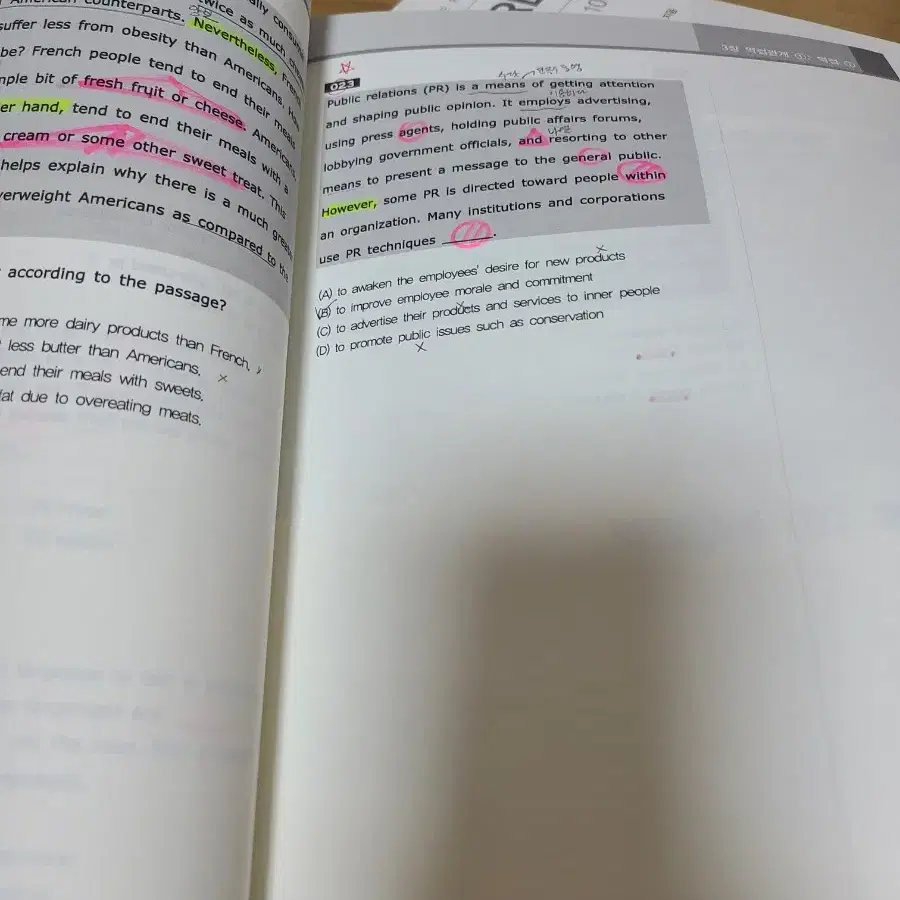 ally consum
American counterparts. twice as much chee
suffer less from obesity than Americans. How
be? French people tend to end their meals
mple bit of fresh fruit or cheese. Americans,
er hand, tend to end their meals with a
cream or some other sweet treat. This
helps explain why there is a much greate
verweight Americans as compared to the
Nevertheless, Fren
according to the passage?
me more dairy products than French.
less butter than Americans.
end their meals with sweets.
fat due to overeating meats.
3장
023
수단
Public relations (PR) is a means of getting attention
and shaping public opinion. It employs advertising,
using press agents, holding public affairs forums,
lobbying government officials, and resorting to other
means to present a message to the general public.
However, some PR is directed toward people within
an organization. Many institutions and corporations
use PR techniques ______.
(A) to awaken the employees' desire for new products
(B) to improve employee morale and commitment
(C) to advertise their products and services to inner people
(D) to promote public issues such as conservation